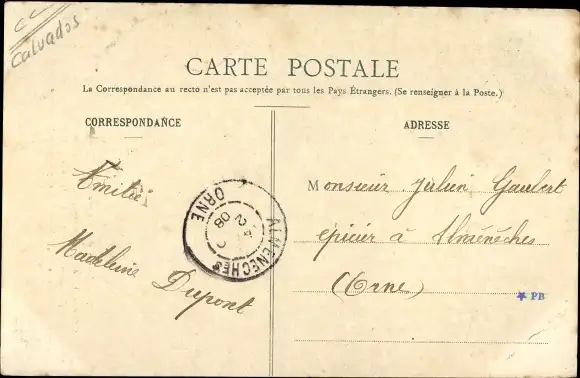 Calvados
CARTE POSTALE
La Correspondance au recto n'est pas acceptée par tous les Pays Étrangers. (Se renseigner à la Poste.)
CORRESPONDANCE
ADRESSE
Amitié
Madeleine Dupont
Monsieur Julien Gaubert
epicier à Almenêches
(Orne)
ALMENECHES
ORNE
08
PB